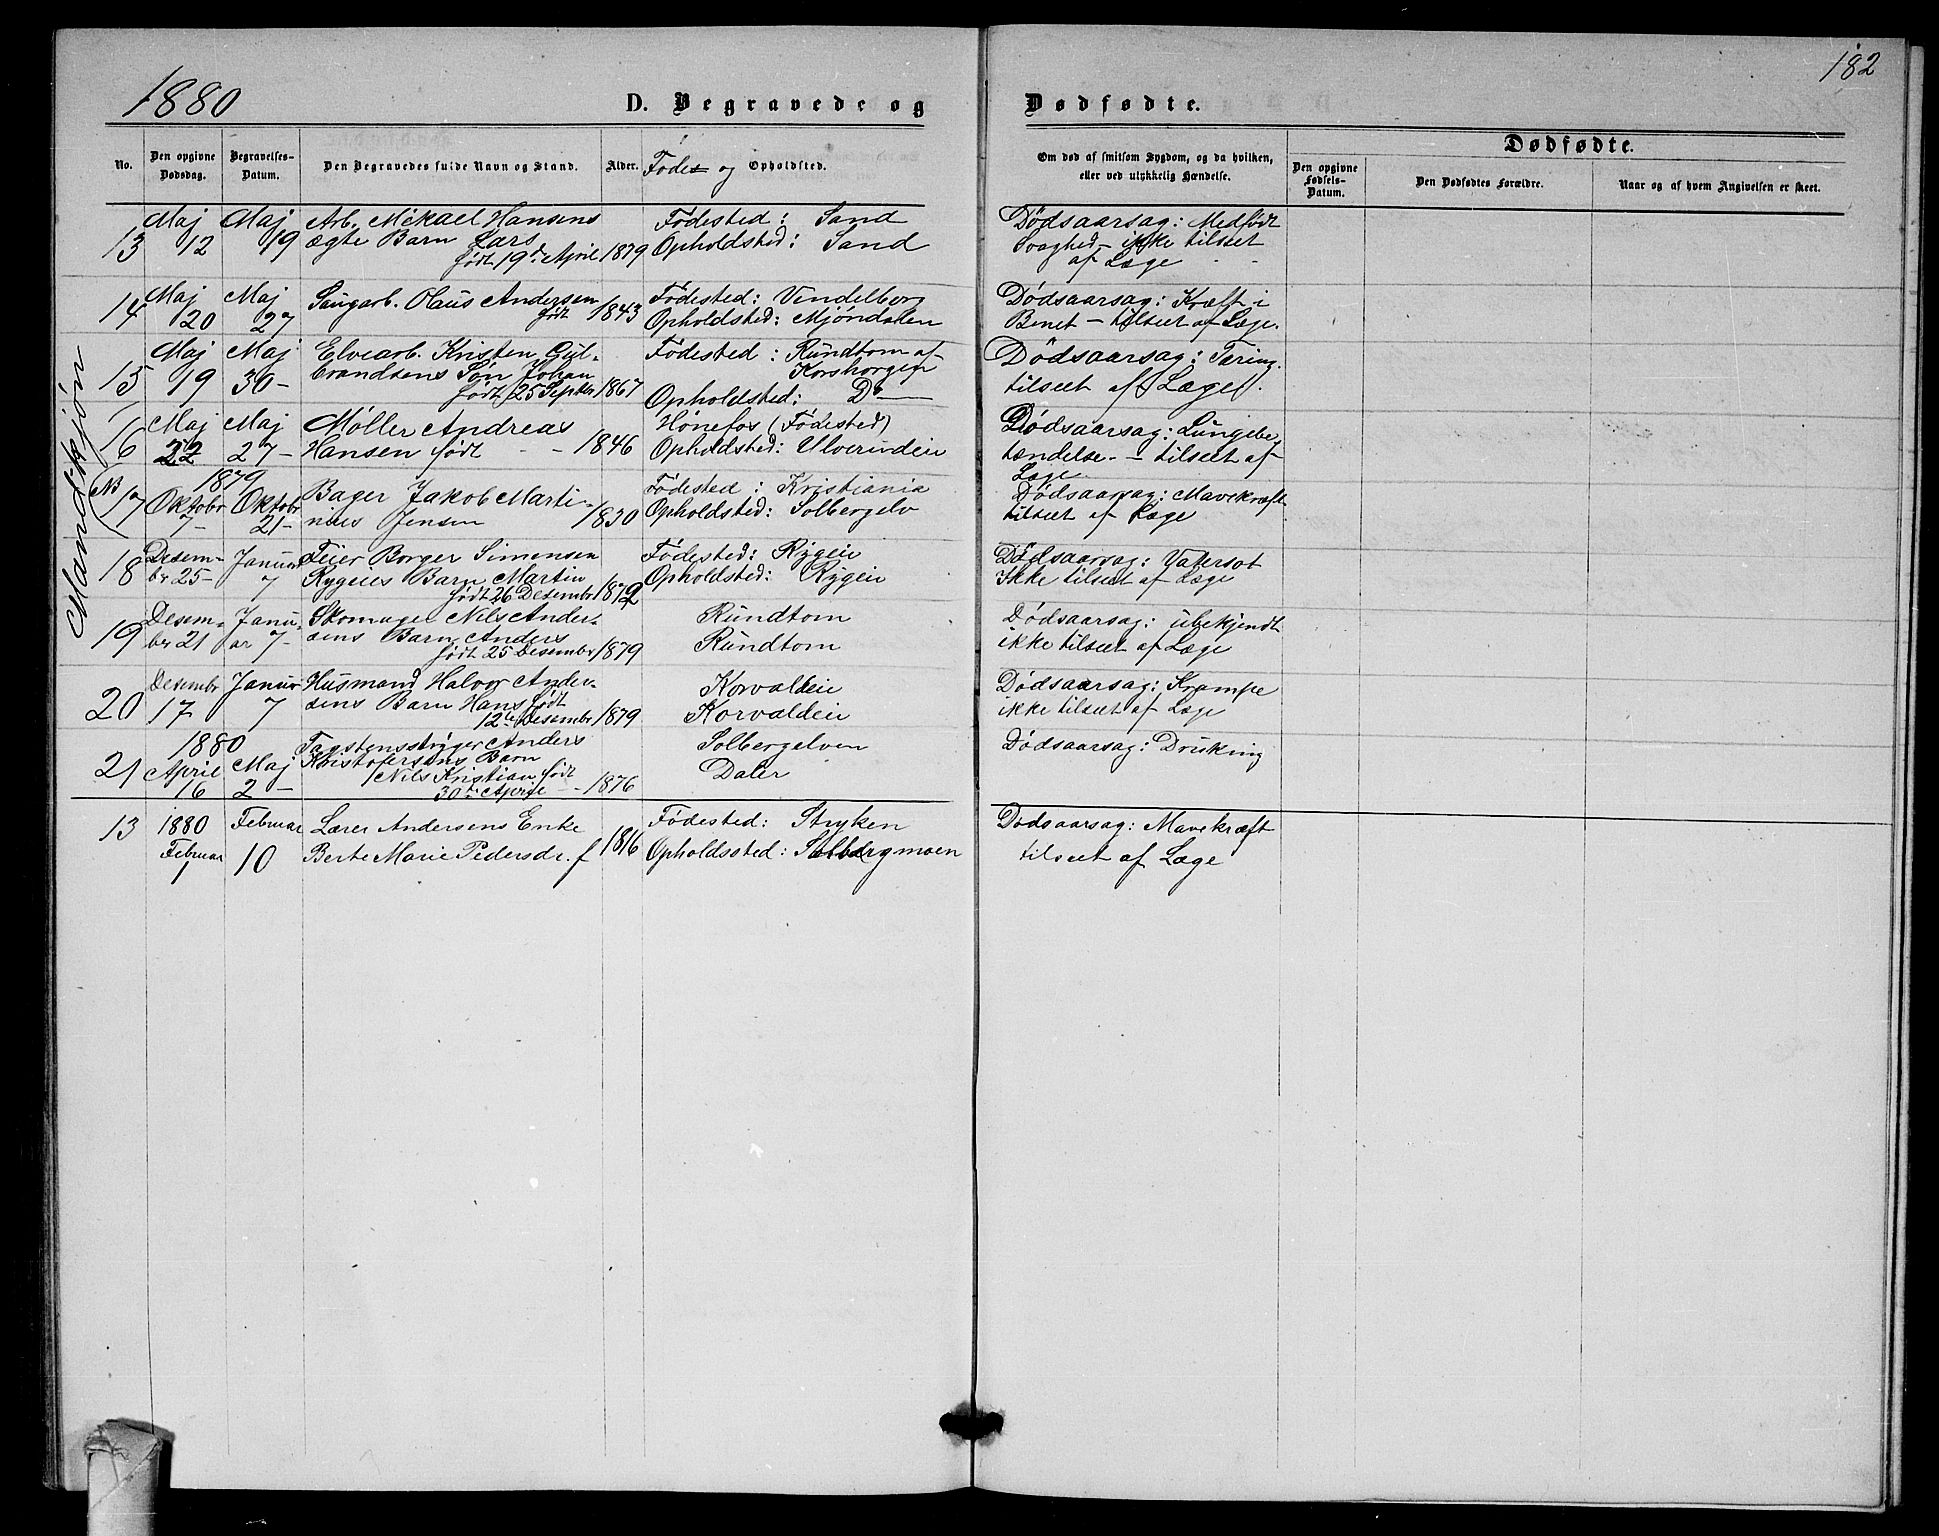 182
1880
D. Begravede og Dødfødte.
No.
Den opgivne Dødsdag.
Begravelses-Datum.
Den Begravedes fulde Navn og Stand.
Alder.
Fødes og Opholdsted.
Om død af smitsom Sygdom, og da hvilken, eller ved ulykkelig Hændelse.
Dødfødte.
Den opgivne Fødsels-Datum.
Den Dødfødtes Forældre.
Naar og af hvem Angivelsen er skeet.
Mandkjøn
13 Maj 12 Maj 19 Arb. Mikael Hansens
ægte Barn Lars
født 19de April 1879
Fødested: Sand
Opholdsted: Sand
Dödsaarsag: Medfødt
Svaghed - ikke tilseet
af Læge
14 Maj 20 Maj 27 Saugarb. Olaus Andersen
født 1843
Fødested: Vendelborg
Opholdsted: Mjöndalen
Dödsaarsag: Kræft i
Benet - tilseet af Læge.
15 Maj 19 Maj 30 - Elvearb. Kristen Gul-
brandsens Søn Johan
født 25 Septbr 1867
Fødested: Rundtom af
Korshorgen
Opholdsted: Do
Dödsaarsag: Tæring.
tilseet af Læge.
16 Maj 22 Maj 27 - Møller Andreas
Hansen født - - 1846
Hønefos (Fødested)
Opholdsted: Ulverudeie
Dödsaarsag: Lungebe-
tændelse. - tilseet af
Læge
NB 17 1879 Oktobr 7 - Oktobr 21 - Bager Jakob Marti-
nius Jensen 1830
Fødested: Kristiania
Opholdsted: Solbergelv
Dødsaarsag: Mavekræft
tilseet af Læge
18 Desem-
br 25 - Januar 7 Feier Borger Simensen
Rygeies Barn Martin
født 26 Desembr 1879
Fødested: Rygeie
Opholdsted: Rygeie
Dödsaarsag: Vatersot
Ikke tilseet af Læge
19 Desem-
br 21 Janu-
ar 7 - Skomager Nils Ander-
sens Barn Anders
født 25 Desembr 1879
Rundtom
Rundtom
Dödsaarsag: ubekjendt
ikke tilseet af Læge
20 Desembr 17 Januar 7 Husmand Halvor Ander-
sens Barn Hans født
12te Desembr 1879
Korvaldeie
Korvaldeie
Dödsaarsag: Krampe
ikke tilseet af Læge
21 1880 April 16 Maj 2 - Tagstensstryger Anders
Kristofersens Barn
Nils Kristian født
30te April - - 1876
Solbergelven
Daler
Dödsaarsag: Drukning
13 1880 Februar 1 Februar 10 Lærer Andersens Enke
Berte Marie Pedersdr. f 1816
Fødested: Stryken
Opholdssted: Solbergmoen
Dödsaarsag: Mavekræft
tilseet af Læge